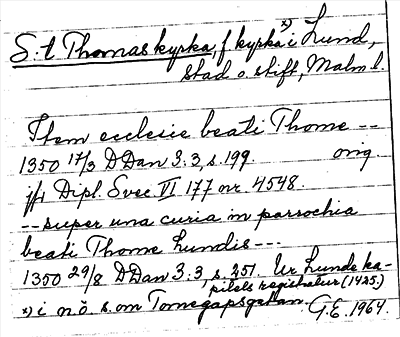 S:t Thomas kyrka, f kyrka x) i Lund,
stad o stift, Malm l.
Item ecclesie beati Thome --
1350 17/3 DDan 3:3, s. 199. orig.
jfr Dipl. Svec VI 177 nr 4548.
-- super una curia in parrochia
beati Thome Lundis ---
1350 29/8 DDan 3:3, s. 251. Ur Lunde ka-
pitels registratur (1425.)
x) i nö. s. om Tomegapsgatan. G.E. 1964.